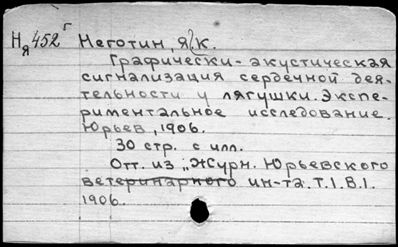 Ня 452г Неготин, Я. К.
Графически-акустическая
сигнализация сердечной дея-
тельности у лягушки. Экспе-
риментальное исследование.
Юрьев, 1906.
30 стр. с илл.
Отт. из „Журн. Юрьевского
ветеринарного ин-та. Т. I. В. I.
1906.